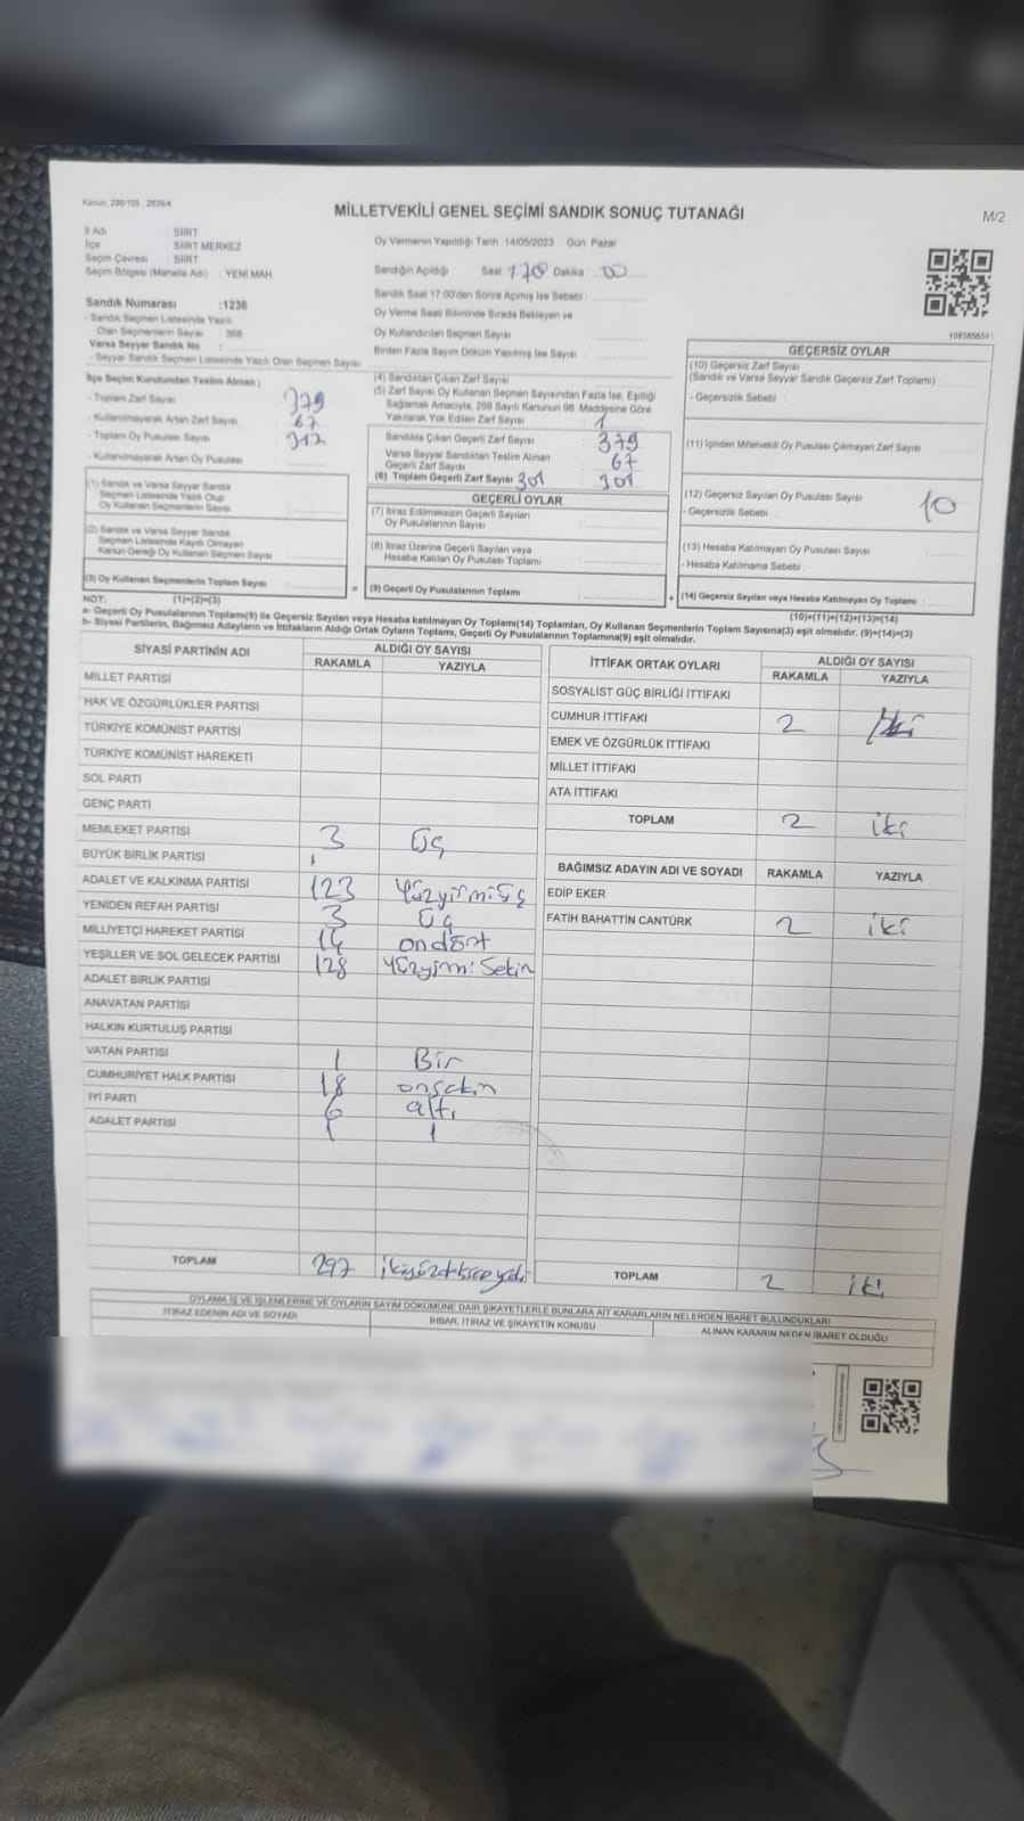 MİLLETVEKİLİ GENEL SEÇİMİ SANDIK SONUÇ TUTANAĞI
M/2
İl Adı : SİİRT
İlçe : SİİRT MERKEZ
Seçim Çevresi : SİİRT
Seçim Bölgesi (Mahalle Adı) : YENİ MAH.
Oy Vermenin Yapıldığı Tarih :14/05/2023 Gün: Pazar
Sandığın Açıldığı Saat Dakika 00
Sandık Saat 17:00'den Sonra Açılmış İse Sebebi :
Oy Verme Saati Bitiminde Sırada Bekleyen ve
Oy Kullandırılan Seçmen Sayısı
Birden Fazla Sayım Döküm Yapılmış İse Sayısı
Sandık Numarası :1236
- Sandık Seçmen Listesinde Yazılı
Olan Seçmenlerin Sayısı
Varsa Seyyar Sandık No :
- Seyyar Sandık Seçmen Listesinde Yazılı Olan Seçmen Sayısı
İlçe Seçim Kurulundan Teslim Alınan ;
- Toplam Zarf Sayısı 379
- Kullanılmayarak Artan Zarf Sayısı 67
- Toplam Oy Pusulası Sayısı 312
- Kullanılmayarak Artan Oy Pusulası
(1) Sandık ve Varsa Seyyar Sandık
Seçmen Listesinde Yazılı Olup
Oy Kullanan Seçmenlerin Sayısı
(2) Sandık ve Varsa Seyyar Sandık
Seçmen Listesinde Kayıtlı Olmayan
Kanun Gereği Oy Kullanan Seçmen Sayısı
(3) Oy Kullanan Seçmenlerin Toplam Sayısı
(4) Sandıktan Çıkan Zarf Sayısı
(5) Zarf Sayısı Oy Kullanan Seçmen Sayısından Fazla İse, Eşitliği
Sağlamak Amacıyla, 298 Sayılı Kanunun 98. Maddesine Göre
Yakılarak Yok Edilen Zarf Sayısı 1
Sandıkta Çıkan Geçerli Zarf Sayısı 379
Varsa Seyyar Sandıktan Teslim Alınan
Geçerli Zarf Sayısı 67
(6) Toplam Geçerli Zarf Sayısı 301 301
GEÇERLİ OYLAR
(7) İtiraz Edilmeksizin Geçerli Sayılan
Oy Pusulalarının Sayısı
(8) İtiraz Üzerine Geçerli Sayılan veya
Hesaba Katılan Oy Pusulası Toplamı
(9) Geçerli Oy Pusulalarının Toplamı
GEÇERSİZ OYLAR
(10) Geçersiz Zarf Sayısı
(Sandık ve Varsa Seyyar Sandık Geçersiz Zarf Toplamı)
- Geçersizlik Sebebi
(11) İçinden Milletvekili Oy Pusulası Çıkmayan Zarf Sayısı
(12) Geçersiz Sayılan Oy Pusulası Sayısı 10
- Geçersizlik Sebebi
(13) Hesaba Katılmayan Oy Pusulası Sayısı
- Hesaba Katılmama Sebebi
(14) Geçersiz Sayılan veya Hesaba Katılmayan Oy Toplamı
NOT: (1)+(2)=(3) (10)+(11)+(12)+(13)=(14)
a- Geçerli Oy Pusulalarının Toplamı(9) ile Geçersiz Sayılan veya Hesaba katılmayan Oy Toplamı(14) Toplamları, Oy Kullanan Seçmenlerin Toplam Sayısına(3) eşit olmalıdır. (9)+(14)=(3)
b- Siyasi Partilerin, Bağımsız Adayların ve İttifakların Aldığı Ortak Oyların Toplamı, Geçerli Oy Pusulalarının Toplamına(9) eşit olmalıdır.
SİYASİ PARTİNİN ADI ALDIĞI OY SAYISI
RAKAMLA YAZIYLA
MİLLET PARTİSİ
HAK VE ÖZGÜRLÜKLER PARTİSİ
TÜRKİYE KOMÜNİST PARTİSİ
TÜRKİYE KOMÜNİST HAREKETİ
SOL PARTİ
GENÇ PARTİ
MEMLEKET PARTİSİ 3 üç
BÜYÜK BİRLİK PARTİSİ
ADALET VE KALKINMA PARTİSİ 123 Yüzyirmiüç
YENİDEN REFAH PARTİSİ 3 üç
MİLLİYETÇİ HAREKET PARTİSİ 14 ondört
YEŞİLLER VE SOL GELECEK PARTİSİ 128
ADALET BİRLİK PARTİSİ
ANAVATAN PARTİSİ
HALKIN KURTULUŞ PARTİSİ
VATAN PARTİSİ 1 Bir
CUMHURİYET HALK PARTİSİ 18 onsekin
İYİ PARTİ 6 altı
ADALET PARTİSİ 1 1
TOPLAM 297
İTTİFAK ORTAK OYLARI ALDIĞI OY SAYISI
RAKAMLA YAZIYLA
SOSYALİST GÜÇ BİRLİĞİ İTTİFAKI
CUMHUR İTTİFAKI 2 iki
EMEK VE ÖZGÜRLÜK İTTİFAKI
MİLLET İTTİFAKI
ATA İTTİFAKI
TOPLAM 2 iki
BAĞIMSIZ ADAYIN ADI VE SOYADI RAKAMLA YAZIYLA
EDİP EKER
FATİH BAHATTİN CANTÜRK 2 iki
TOPLAM 2 iki
OYLAMA İŞ VE İŞLEMLERİNE VE OYLARIN SAYIM DÖKÜMÜNE DAİR ŞİKAYETLERLE BUNLARA AİT KARARLARIN NELERDEN İBARET BULUNDUKLARI
İTİRAZ EDENİN ADI VE SOYADI İHBAR, İTİRAZ VE ŞİKAYETİN KONUSU ALINAN KARARIN NEDEN İBARET OLDUĞU